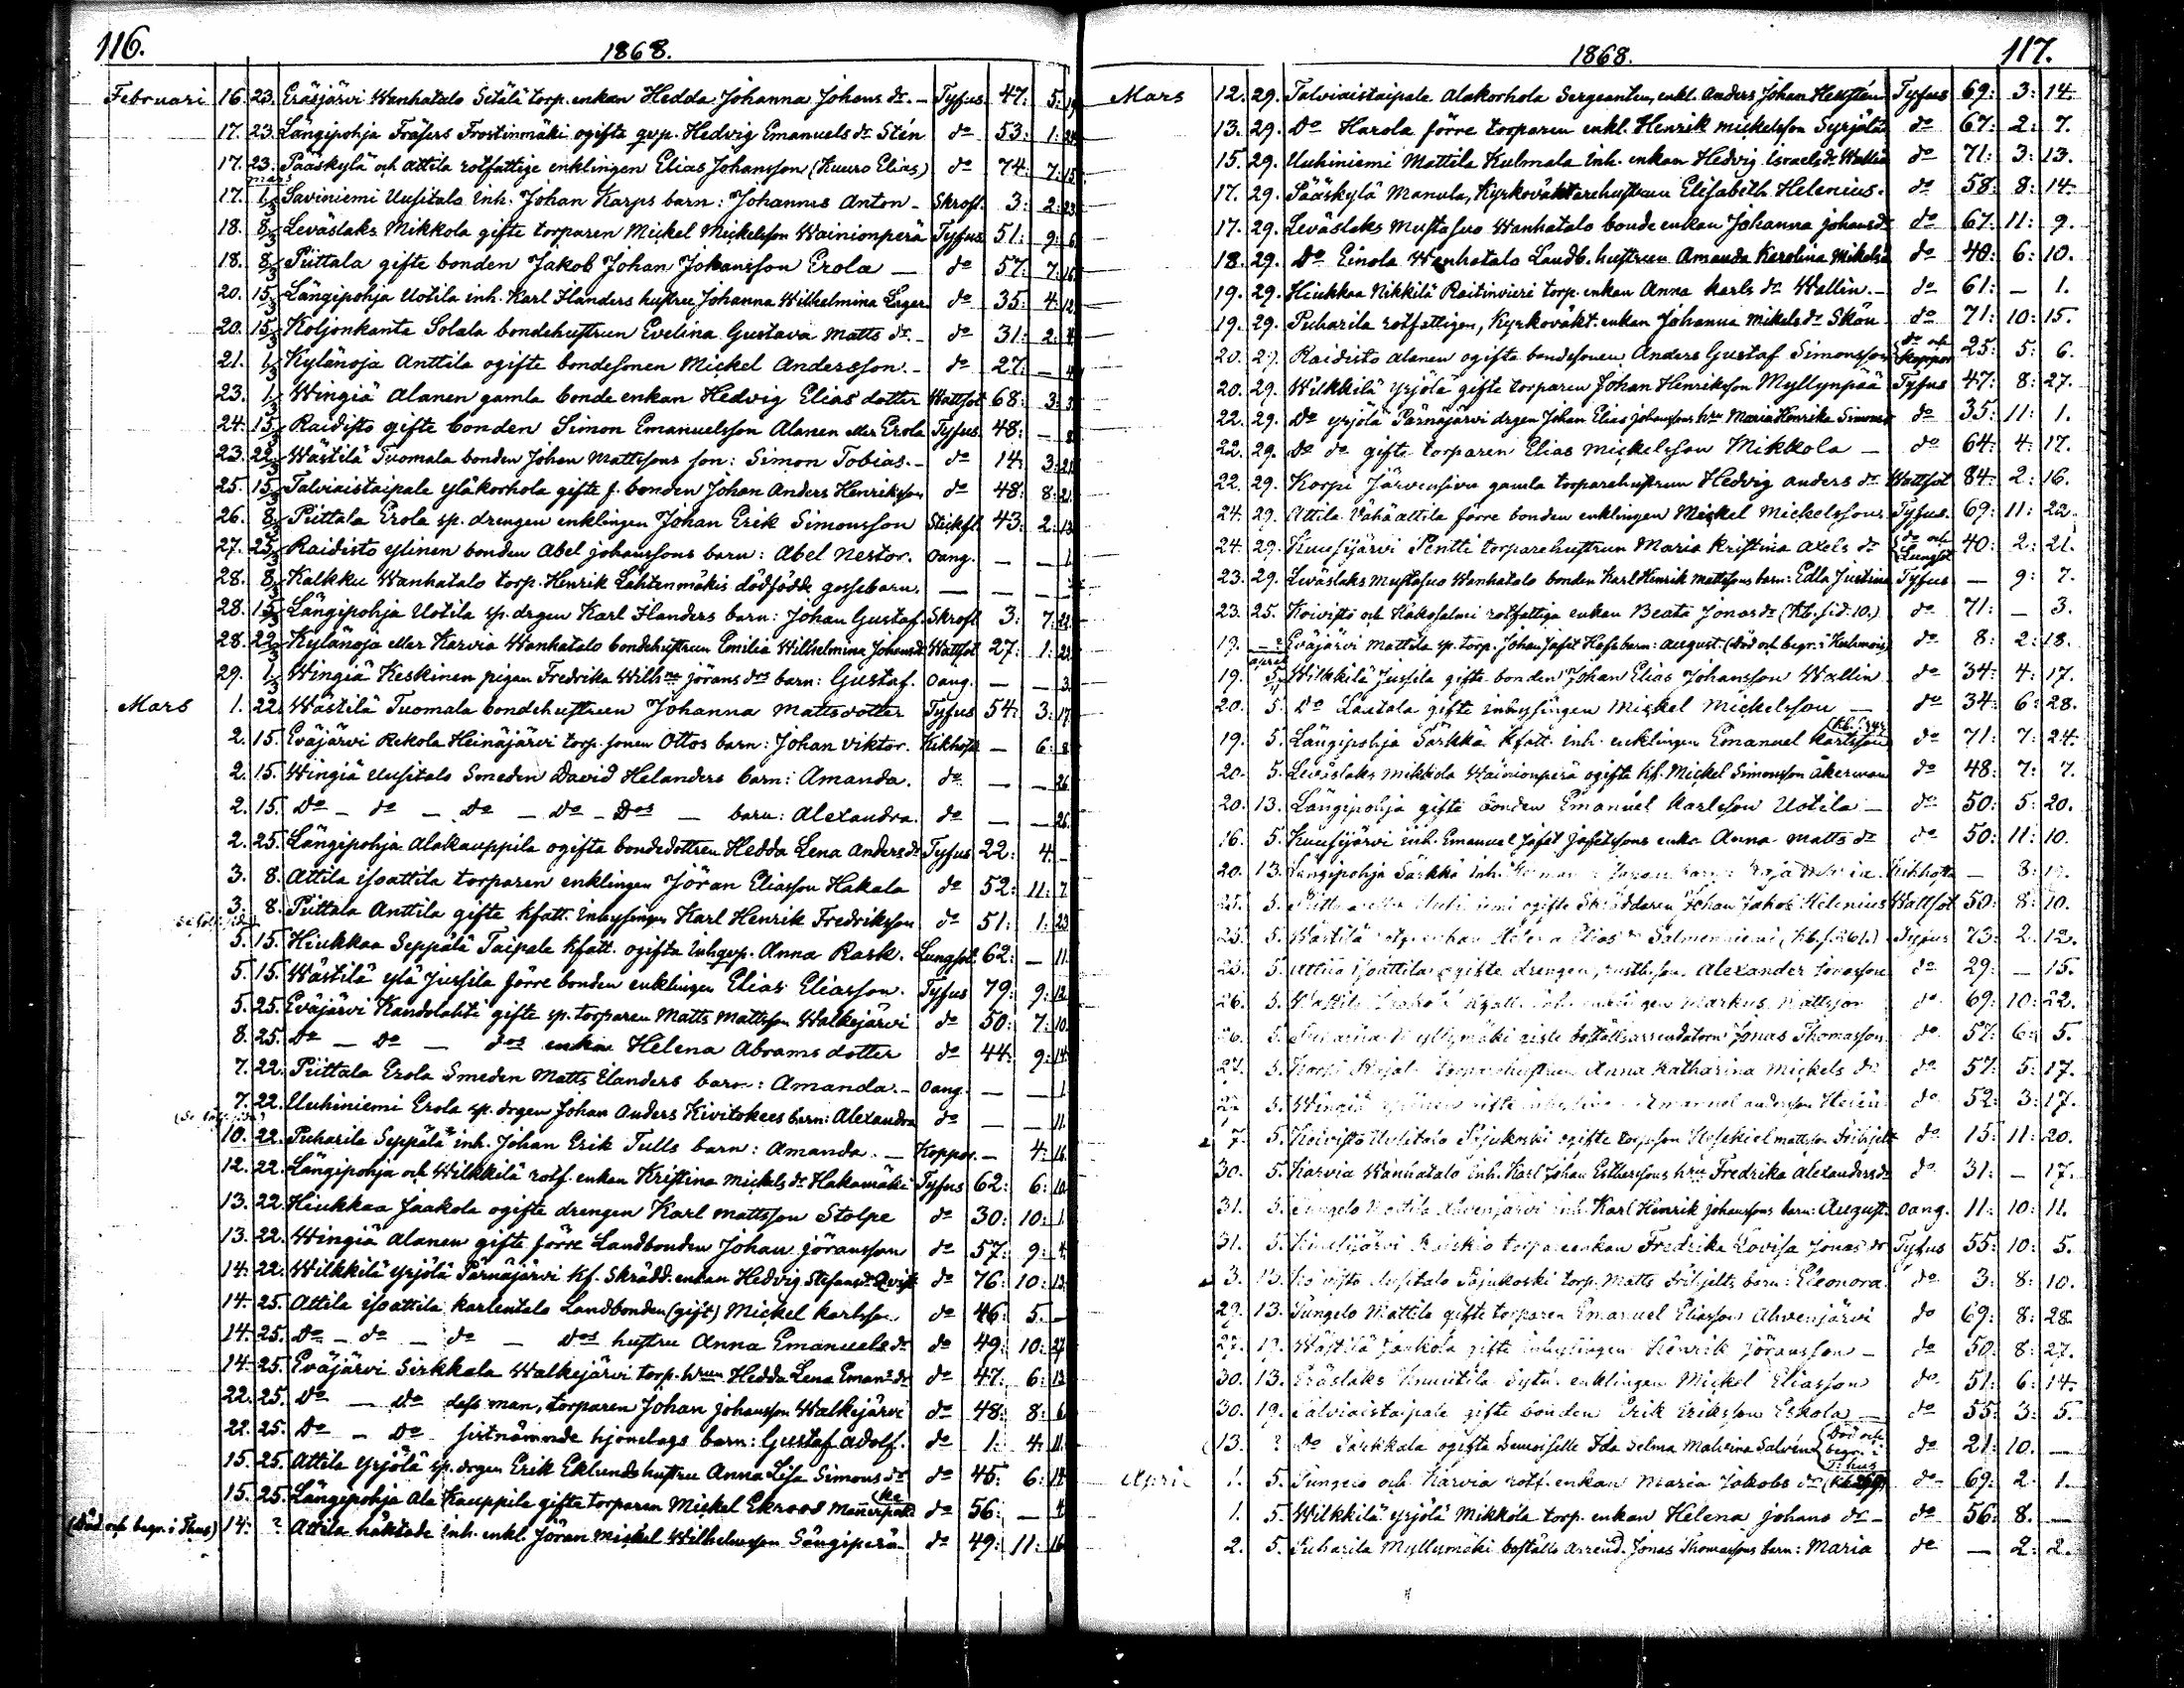 116.
1868.
Februari 16. 23. Eräsjärvi Wanhatalo Setälä torp. enkan Hedda Johanna Johans dr. - Tyfus 47: 5: 19
17. 23. Längipohja Fräsers Frostinmäki ogifta qvp. Hedvig Emanuels dr Stén do 53: 1: 24
17. 23. Pääskylä och Attila rotfattige enklingen Elias Johansson (Kuuro Elias) do 74: 7: 15
mars
17. 1/3 Saviniemi Uusitalo Inh. Johan Karps barn: Johannes Anton - Skrofl. 3: 2: 23
18. 8/3 Leväslaks Mikkola gifte torparen Mickel Mickelsson Wainionperä Tyfus 51: 9: 6
18. 8/3 Piittala gifte bonden Jakob Johan Johansson Erola — do 57: 7: 16
20. 15/3 Längipohja Uotila inh. Karl Flanders hustru Johanna Wilhelmina do 35: 4: 12
20. 15/3 Koljonkanta Solala bondehustrun Evelina Gustava Matts dr. - do 31: 2: 4
21. 1/3 Kylänoja Anttila ogifte bondesonen Mickel Andersson. - do 27: — 4
23. 1/3 Wingiä Alanen gamla bonde enkan Hedvig Elias dotter Wattsot 68: 3: 3
24. 15/3 Raidisto gifte bonden Simon Emanuelsson Alanen eller Erola Tyfus 48: — 8
23. 22/3 Wästilä Tuomala bonden Johan Mattssons son: Simon Tobias. - do 14: 3: 21
25. 15/3 Talviaistaipale yläkorhola gifte f. bonden Johan Anders Henriksson do 48: 8: 21
26. 8/3 Piittala Erola sp. drengen enklingen Johan Erik Simonsson Stickfl. 43: 2: 13
27. 25/3 Raidisto ylinen bonden Abel Johanssons barn: Abel Nestor. Oang. — — 1
28. 8/3 Kalkku Wanhatalo torp. Henrik Lähtenmäkis dödfödde gossebarn. — — —
28. 15/3 Längipohja Uotila sp. drgen Karl Flanders barn: Johan Gustaf Skrofl 3: 7: 21
28. 22/3 Kylänoja eller Karvia Wanhatalo bondehustrun Emilia Wilhelmina Johansdr Wattsot 27: 1: 22
29. 1/3 Wingiä Keskinen pigan Fredrika Wilhna Jörans drs barn: Gustaf. Oang. — — 3
Mars 1. 22. Wästilä Tuomala bondehustrun Johanna Mattsdotter Tyfus 54: 3: 17
2. 15. Eväjärvi Rekola Heinäjärvi torp. sonen Ottos barn: Johan Viktor. Kikhosta — 6: 8
2. 15. Wingiä Uusitalo Smeden David Helanders barn: Amanda. do — — 26
2. 15. Do - do - Do - Do - Dos — barn: Alexandra. do — — 26
2. 25. Längipohja Alakauppila ogifta bondedottren Hedda Lena Anders dr Tyfus 22: 4: -
3. 8. Attila isoattila torparen enklingen Jöran Eliasson Hakala do 52: 11: 7
3. 8. Piittala Anttila gifte kfatt. Inhysingen Karl Henrik Fredriksson do 51: 1: 23
5. 15. Hiukkaa Seppälä Taipale kfatt. ogifta Inhqvp. Anna Rask. Lungsot. 62: — 11
5. 15. Wästilä ylä Jussila förre bonden enklingen Elias Eliasson. Tyfus 79: 9: 12
5. 25. Eväjärvi Kandolahti gifte sp. torparen Matts Mattsson Walkejärvi do 50: 7: 10
8. 25. Do — Do — dos enka Helena Abrams dotter do 44: 9: 14
7. 22. Piittala Erola Smeden Matts Elanders barn: Amanda. - Oang. — — 1
7. 22. Uuhiniemi Erola sp. drgen Johan Anders Kivitokees barn: Alexandra do — — 11
10. 22. Puharila Seppälä inh. Johan Erik Tulls barn: Amanda. — Koppor. — 4: 16
12. 22. Längipohja och Wilkkilä rotf. enkan Kristina Mickels dr Hakamäki Tyfus 62: 6: 10
13. 22. Hiukkaa Jaakola ogifte drengen Karl Mattsson Stolpe do 30: 10: 1
13. 22. Wingiä Alanen gifte förre Landbonden Johan Jöransson do 57: 9: 4
14. 22. Wilkkilä yrjölä Pärnäjärvi kf. Skrädd. enkan Hedvig Stefansdr Qvist do 76: 10: 13
14. 25. Attila isoattila karlentalo Landbonden (gift) Mickel Karlsson do 46: 5. -
14. 25. Do - do - do — dos hustru Anna Emanuels dr do 49: 10: 27
14. 25. Eväjärvi Sirkkala Walkejärvi torp. hrun Hedda Lena Emanls dr do 47: 6: 13
22. 25. Do — Do dess man, torparen Johan Johansson Walkejärvi do 48: 8: 6
22. 25. Do - Do sistnämnde hjonelags barn: Gustaf Adolf. do 1: 4: 11
15. 25. Attila yrjölä sp. drgen Erik Eklunds hustru Anna Lisa Simons dr do 45: 6: 12
15. 25. Längipohja Ala Kauppila gifte torparen Mickel Ekroos do 56: — 4
(Död och begr. i Thus) 14. ? Attila håkstade inh. enkl. Jöran Mickel Wilhelmsson Sångiperä do 49: 11: 16
1868.
117.
Mars 12. 29. Talviaistaipale Alakorhola Sergeanten, enkl. Anders Johan Tyfus 69: 3: 14.
13. 29. Do Harola förre torparen enkl. Henrik Mickelsson Syrjälä do 67: 2: 7.
15. 29. Uuhiniemi Mattila Kulmala Inh. enkan Hedvig Israels dr Wallin do 71: 3: 13.
17. 29. Pääskylä Manula, Kyrkovaktarehustrun Elisabeth Helenius. do 58: 8: 14.
17. 29. Leväslaks Mustasuo Wanhatalo bonde enkan Johanna Johansdr do 67: 11: 9.
18. 29. Do Einola Wanhatalo Landb. hustrun Amanda Karolina Mikelsd do 40: 6: 10.
19. 29. Hiukkaa Nikkilä Raitinvieri torp. enkan Anna Karls dr Wallin. - do 61: — 1.
19. 29. Puharila rotfattigen, Kyrkovakt. enkan Johanna Mikels dr Skön do 71: 10: 15.
20. 29. Raidisto Alanen ogifte bondesonen Anders Gustaf Simonsson do och koppor 25: 5: 6.
20. 29. Wilkkilä yrjölä gifte torparen Johan Henriksson Myllynpää Tyfus 47: 8: 27.
22. 29. Do yrjölä Pärnäjärvi drgen Johan Elias Johanssons hru Maria Henrika Simonsd do 35: 11: 1.
22. 29. Do do gifte torparen Elias Mickelsson Mikkola — do 64: 4: 17.
22. 29. Korpi Järvensivu gamla torparehustrun Hedvig Anders dr Wattsot 84: 2: 16.
24. 29. Attila Vähäattila förre bonden enklingen Mickel Mickelsson Tyfus. 69: 11: 22.
24. 29. Kuusijärvi Pentti torparehustrun Maria Kristina Axels dr do och Lungsot 40: 2: 21.
23. 29. Leväslaks Mustasuo Wanhatalo bonden Karl Henrik Mattssons barn: Edla Justina Tyfus — 9: 7.
23. 25. Koivisto och Kakosalmi rotfattiga enkan Beata Jonas dr (Kb. sid. 10.) do 71: — 3.
19. — ? Eväjärvi Mattila sp. torp. Johan Jafet barn: August. (Död och begr. i Kuhmois) do 8: 2: 18.
april
19. 5/4 Wilkkilä Jussila gifte bonden Johan Elias Johansson Wallin do 34: 4: 17.
20. 5. Do Lautala gifte inhysingen Mickel Mickelsson — do 34: 6: 28.
19. 5. Längipohja Särkkä kfatt. inh. enklingen Emanuel Karlsson do 71: 7: 24.
20. 5. Leväslaks Mikkola Wäinionperä ogifte kf. Mickel Simonsson Åkerman do 48: 7: 7.
20. 13. Längipohja gifte bonden Emanuel Karlsson Uotila — do 50: 5: 20.
16. 5. Kuusijärvi inh. Emanuel Jafet Jafetssons enka Anna Matts dr do 50: 11: 10.
20. 13. Längipohja Särkkä Inh. Kikhosta — 3:
25. 5. ogifte Skräddaren Johan Jakob Helenius Wattsot 50: 8: 10.
25. 5. Wästilä Elias dr Salmenniemi (Kb. s. 261.) Tyfus 73: 2: 12.
25. 5. Attila Isoattila ogifte drengen, Alexander Jonasson do 29: — 15.
26. 5. Markus Mattsson do 69: 10: 22.
26. 5. Puharila Myllymäki gifte boställsarrendatorn Jonas Thomasson do 57: 6: 5.
27. 5. Korpi torparehustrun Anna Katharina Mickels dr do 57: 5: 17.
5. Wingiä Emanuel Andersson do 52: 3: 17.
7. 5. Koivisto Uusitalo Pajukoski ogifte torpson Hesekiel Mattsson do 15: 11: 20.
30. 5. Karvia Wanhatalo Inh. Karl Johan hru Fredrika Alexandersdr do 31: — 17.
31. 5. Mattila Ahvenjärvi inh. Karl Henrik Johanssons barn: August. Oang. 11: 10: 11.
31. 5. Kuusijärvi torpareenkan Fredrika Lovisa Jonas dr Tyfus 55: 10: 5.
3. 13. Koivisto Uusitalo Pajukoski torp. Matts barn: Eleonora. do 3: 8: 10.
29. 13. Mattila gifte torparen Emanuel Eliasson Ahvenjärvi do 69: 8: 28.
Wästilä Jaakola gifte inhysingen Henrik Jöransson — do 50: 8: 27.
30. 13. Eräslaks Knuutila enklingen Mickel Eliasson do 51: 6: 14.
30. 19. Talviaistaipale gifte bonden Erik Eriksson Eskola — do 55: 3: 5.
13. ? Do Pärkkala ogifta Demoiselle Ida Selma Malvina Salvén (Död och begr. i T:hus do 21: 10. —
April 1. 5. och Karvia rotf. enkan Maria Jakobs dr do 69: 2. 1.
1. 5. Wilkkilä yrjölä Mikkola torp. enkan Helena Johans dr — do 56: 8. —
2. 5. Puharila Myllymäki boställs Arrend. Jonas Thomassons barn: Maria do — 2: 2.